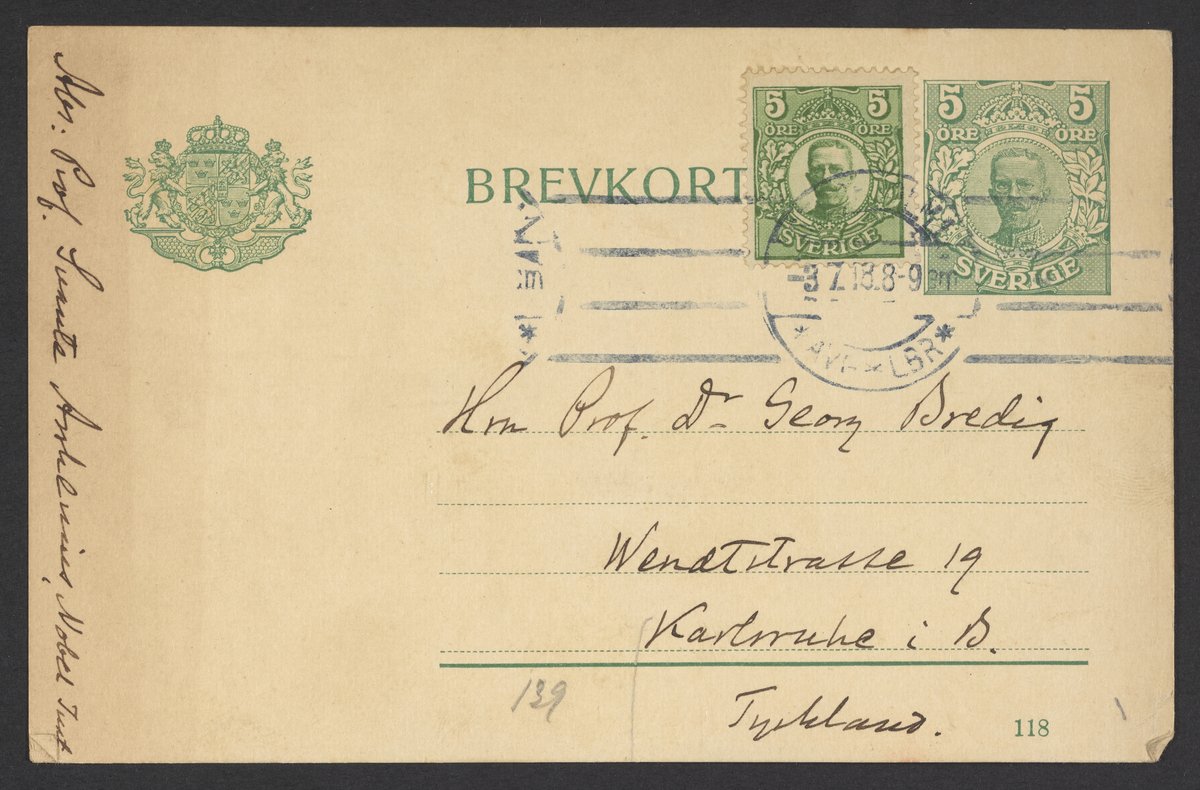 Abs: Prof. Svante Arrhenius, Nobel Inst
BREVKORT
5 5
ÖRE ÖRE
SVERIGE
5 5
ÖRE ÖRE
SVERIGE
3 7.18.8-9 em
* * LBR *
Hrn Prof. Dr Georg Bredig
Wendtstrasse 19
Karlsruhe i B.
Tyskland.
139
118